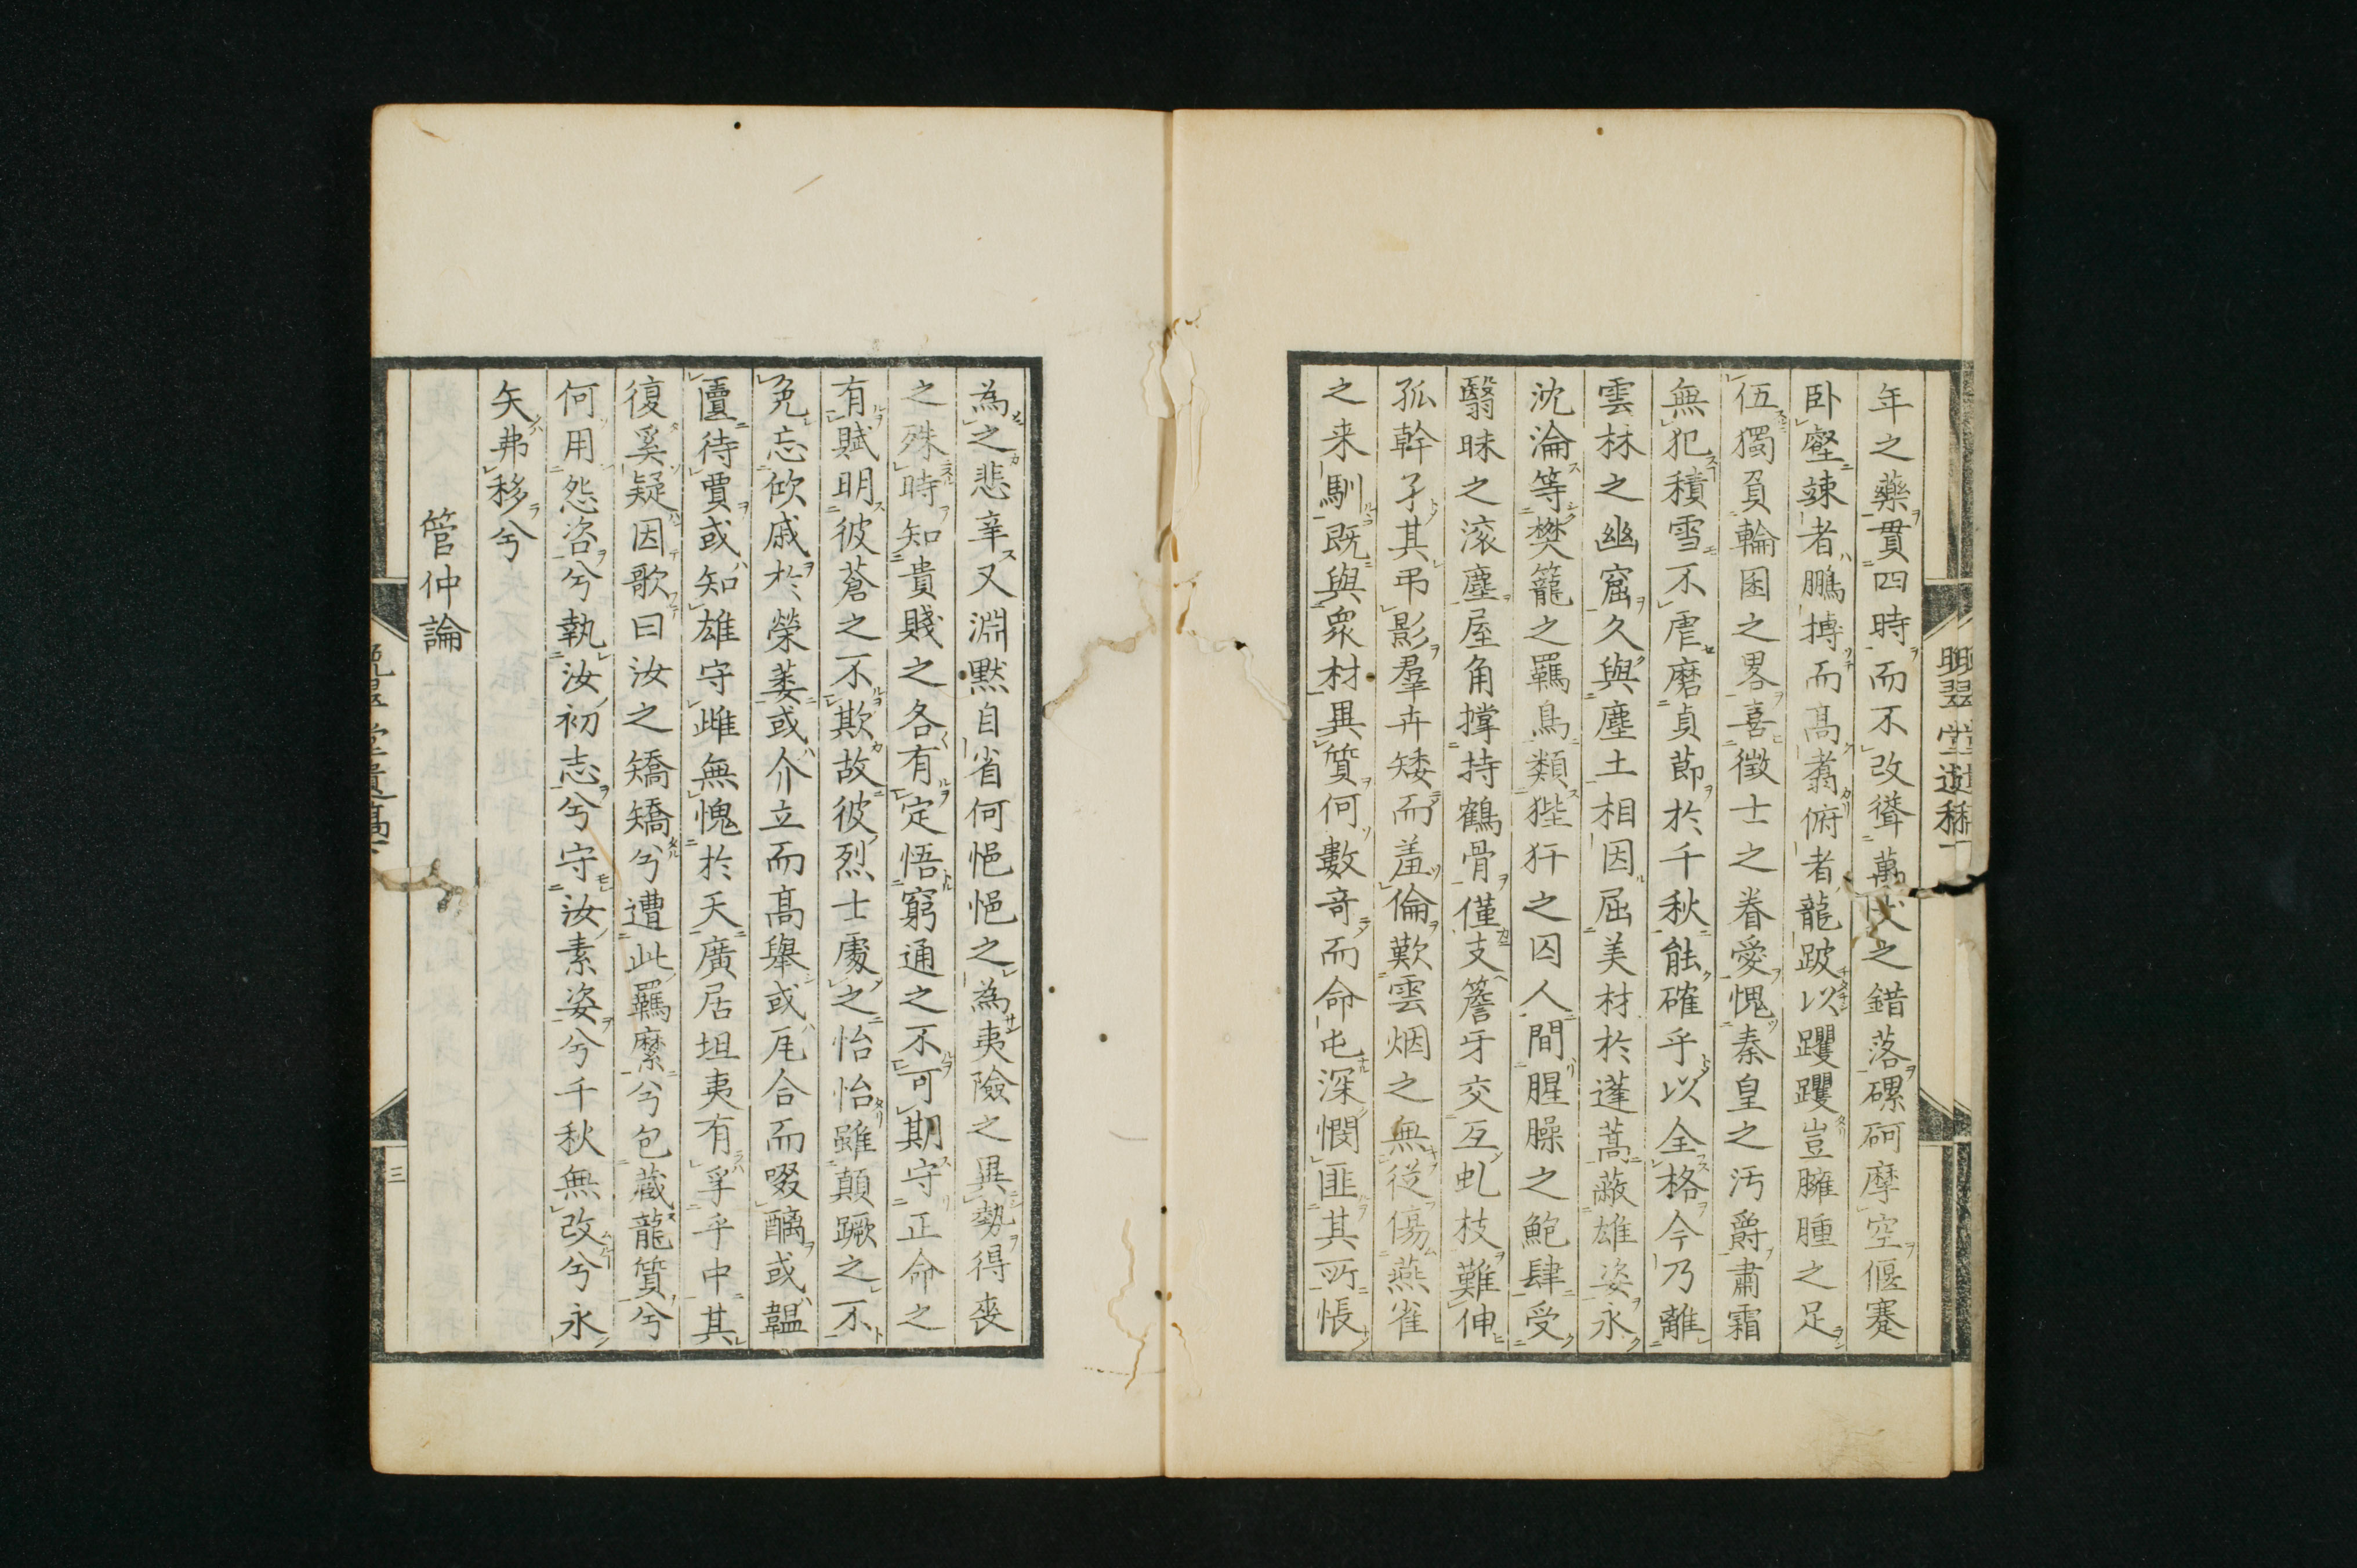 年之藥貫四時而不改聳萬之錯落磥砢摩空偃蹇
臥壑竦者鵬搏而高翥俯者龍跛以躩躩豈臃腫之足
伍獨負輪囷之畧喜徵士之眷愛愧秦皇之汚爵肅霜
無犯積雪不虐磨貞節於千秋能確乎以全格今乃離
雲林之幽窟久與塵土相因屈美材於蓬蒿蔽雄姿永
沈淪等樊籠之羈鳥類狴犴之囚人間腥臊之鮑肆受
翳昧之滚塵屋角撑持鶴骨僅支簷牙交互虬枝難伸
孤幹孑其弔影羣卉矮而羞倫歎雲烟之無從傷燕雀
之来馴既與衆材異質何數竒而命屯深憫匪其所悵
為之悲辛又淵默自省何悒悒之為夷險之異勢得喪
之殊時知貴賤之各有定悟窮通之不可期守正命之
有賦明彼蒼之不欺故彼烈士處之怡怡雖顛蹶之不
免忘欣戚於榮萎或介立而高舉或尾合而啜醨或韞
匵待賈或知雄守雌無愧於天廣居坦夷有孚乎中其
復奚疑因歌曰汝之矯矯兮遭此羈縻兮包藏龍質兮
何用怨咨兮執汝初志兮守汝素姿兮千秋無改兮永
矢弗移兮
管仲論
三